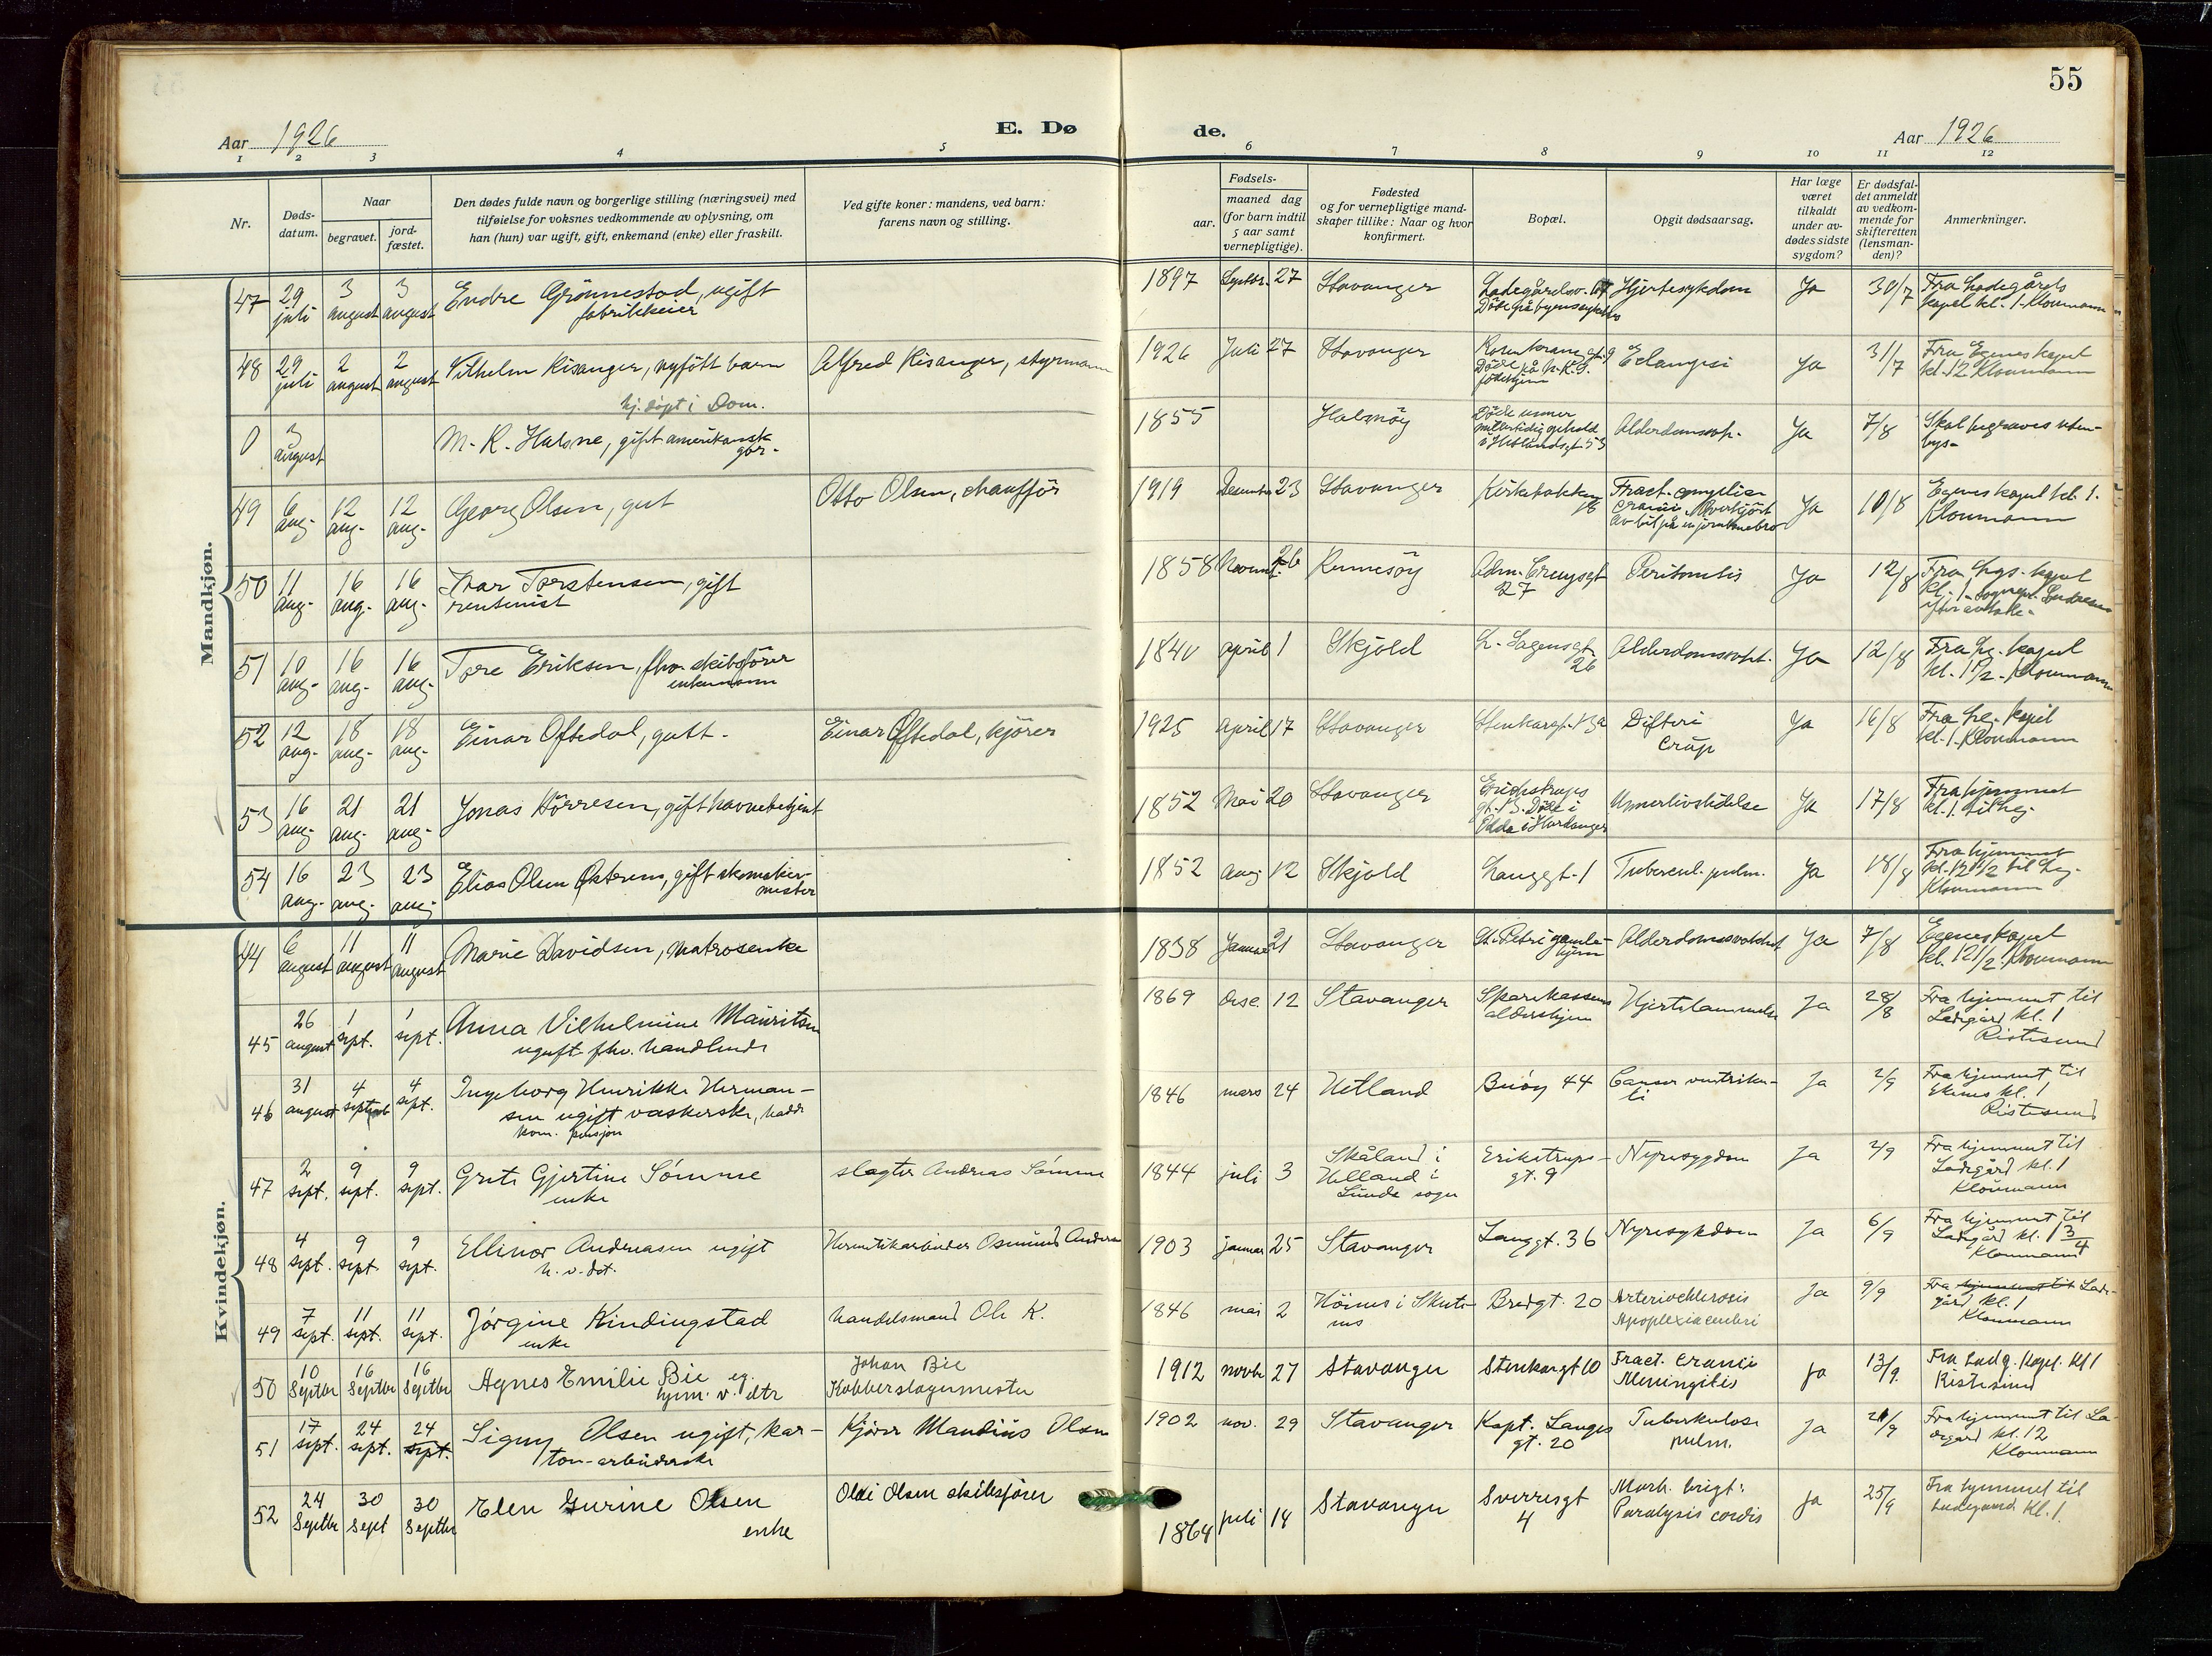 55
Aar 1926
E. Dø
de.
Aar 1926
1 2 3 4 5 6 7 8 9 10 11 12
Nr.
Døds-
datum.
Naar
begravet.
jord-
fæstet.
Den dødes fulde navn og borgerlige stilling (næringsvei) med
tilføielse for voksnes vedkommende av oplysning, om
han (hun) var ugift, gift, enkemand (enke) eller fraskilt.
Ved gifte koner: mandens, ved barn:
farens navn og stilling.
Fødsels-
aar.
maaned dag
(for barn indtil
5 aar samt
vernepligtige).
Fødested
og for vernepligtige mand-
skaper tillike: Naar og hvor
konfirmert.
Bopæl.
Opgit dødsaarsag.
Har læge
været
tilkaldt
under av-
dødes sidste
sygdom?
Er dødsfal-
det anmeldt
av vedkom-
mende for
skifteretten
(lensman-
den)?
Anmerkninger.
Mandkjøn.
47 29 juli 3 august 3 august Endre Grønnestad, ugift
fabrikkeier
1897 Septbr. 27 Stavanger Hjertesykdom Ja 30/7 Fra Ladegårds
kapel kl. 1. Kloumann
48 29 juli 2 august 2 august Vilhelm Kisanger, nyfött barn Alfred Kisanger, styrmann
hj. döpt i Dom.
1926 Juli 27 Stavanger Eclampsi Ja 31/7 Fra Egenes kapel
kl. 12 Kloumann
0 3 august M. K. Halsne, gift amerikansk
gar.
1855 Halsnöy Alderdomssv. Ja 7/8 Skal begraves uten-
bys-
49 6 aug. 12 aug. 12 aug. Georg Olsen, gut Otto Olsen, chauffør
1919 Decembr 23 Stavanger Kirkebakken Fract. complicer
cranii Overkjört
av bil på en jernbanebro
Ja 10/8 Egenes kapel kl. 1.
Kloumann
50 11 aug. 16 aug. 16 aug. Ivar Torstensen, gift
rentenist
1858 Novemb. 26 Rennesöy 27 Peritonitis Ja 12/8 Fra Lgs. kapel
kl. 1
51 10 aug. 16 aug. 16 aug. Tore Eriksen, fhv. skibsförer
enkemann
1840 april 1 Skjold L. Sagensgt.
26 Alderdomssvakh. Ja 12/8 Fra Lg. kapel
kl. 1 1/2. Kloumann
52 12 aug. 18 aug. 18 aug. Einar Oftedal, gutt. Einar Oftedal, kjører
1925 april 17 Stavanger Stenkargt. 13a Difteri
Crup Ja 16/8 Fra Lg. kapel
kl. 1. Kloumann
53 16 aug. 21 aug. 21 aug. Jonas Hörresen, gift havnebetjent
1852 Mai 20 Stavanger Erichstrups
gt. 13. Döde i
Odda i Hardanger Underlivslidelse Ja 17/8 Fra hjemmet
kl. 1. til Lg.
54 16 aug. 23 aug. 23 aug. Elias Olsen Østrem, gift skomaker-
mester
1852 aug. 12 Skjold Langgt. 1 Tubercul. pulm. Ja 18/8 Fra hjemmet
kl. 12 1/2 til Lg.
Kloumann
Kvindekjøn.
44 6 august 11 august 11 august Marie Davidsen, matrosenke
1838 Januar 21 Stavanger St. Petri gamle-
hjem Alderdomssvakhet Ja 7/8 Egenes kapel
kl. 12 1/2. Kloumann
45 26 august 1 sept. 1 sept. Anna Vilhelmine Mauritsen
ugift fhv. handlende
1869 dec. 12 Stavanger Sparekassens
aldershjem Hjertelammelse Ja 28/8 Fra hjemmet til
Ladegård kl. 1
Ristesund
46 31 august 4 septemb 4 sept. Ingeborg Henrikke Herman-
sen ugift vaskerske, hadde
kom. pensjon
1846 mars 24 Hetland Buöy 44 Cancer ventriku-
li Ja 2/9 Fra hjemmet til
Ekenes kl. 1
Ristesund
47 2 sept. 9 sept. 9 sept. Grete Gjertine Sömme slagter Andreas Sömme
enke
1844 juli 3 Skåland i
Helland i
Lunde sogn Erikstrups-
gt. 9 Nyresygdom Ja 2/9 Fra hjemmet til
Ladegård kl. 1
Kloumann
48 4 sept. 9 sept. 9 sept. Ellinor Andreasen ugift Hermetikarbeider Osmund Andreas
h. v. dat.
1903 januar 25 Stavanger Langgt. 36 Nyresykdom Ja 6/9 Fra hjemmet til
Ladegård kl. 1 3/4
Kloumann
49 7 sept. 11 sept. 11 sept. Jörgine Kindingstad handelsmand Ole K.
enke
1846 mai 2 Bredgt. 20 Arteriosklerosis
Apoplexia cerebri Ja 9/9 Fra hjemmet til Lade-
gård kl. 1
Kloumann
50 10 Septbr 16 Septbr 16 Septbr Agnes Emilie Bie ug. Johan Bie
hjem. v. dtr Kobberslagermester
1912 novbr 27 Stavanger Stenkargt 10 Fract. cranii
Meningitis Ja 13/9. Fra Ladg. kapel. Kl 1
Ristesund
51 17 sept. 24 sept. 24 sept. Signy Olsen ugift, kar- Kjører Mandius Olsen
ton-arbeiderske
1902 nov. 29 Stavanger Kapt. Langes
gt. 20 Tuberkulose
pulm. Ja 21/9 Fra hjemmet til La-
degård kl. 12
Kloumann
52 24 Septbr 30 Sept 30 Septbr Elen Gurine Olsen Olai Olsen skibsfører
enke
1864 juli 14 Stavanger Sverresgt
4 Morb. brigt:
Paralysis cordis Ja 25/9 Fra hjemmet til
Ladegaard Kl. 1.